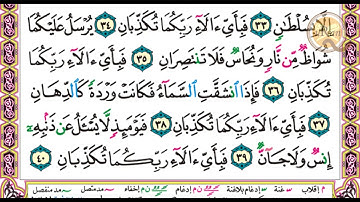 بِسُلْطَٰنٍ ٣٣ فَبِأَىِّ ءَالَآءِ رَبِّكُمَا تُكَذِّبَانِ ٣٤ يُرْسَلُ عَلَيْكُمَا
شُوَاظٌ مِّن نَّارٍ وَنُحَاسٌ فَلَا تَنتَصِرَانِ ٣٥ فَبِأَىِّ ءَالَآءِ رَبِّكُمَا
تُكَذِّبَانِ ٣٦ فَإِذَا ٱنشَقَّتِ ٱلسَّمَآءُ فَكَانَتْ وَرْدَةً كَٱلدِّهَانِ
٣٧ فَبِأَىِّ ءَالَآءِ رَبِّكُمَا تُكَذِّبَانِ ٣٨ فَيَوْمَئِذٍ لَّا يُسْـَٔلُ عَن ذَنۢبِهِۦٓ
إِنسٌ وَلَا جَآنٌّ ٣٩ فَبِأَىِّ ءَالَآءِ رَبِّكُمَا تُكَذِّبَانِ ٤٠
م إقلاب غنة إدغام بلاغنة ن م إدغام ن م إخفاء مد متصل مد منفصل